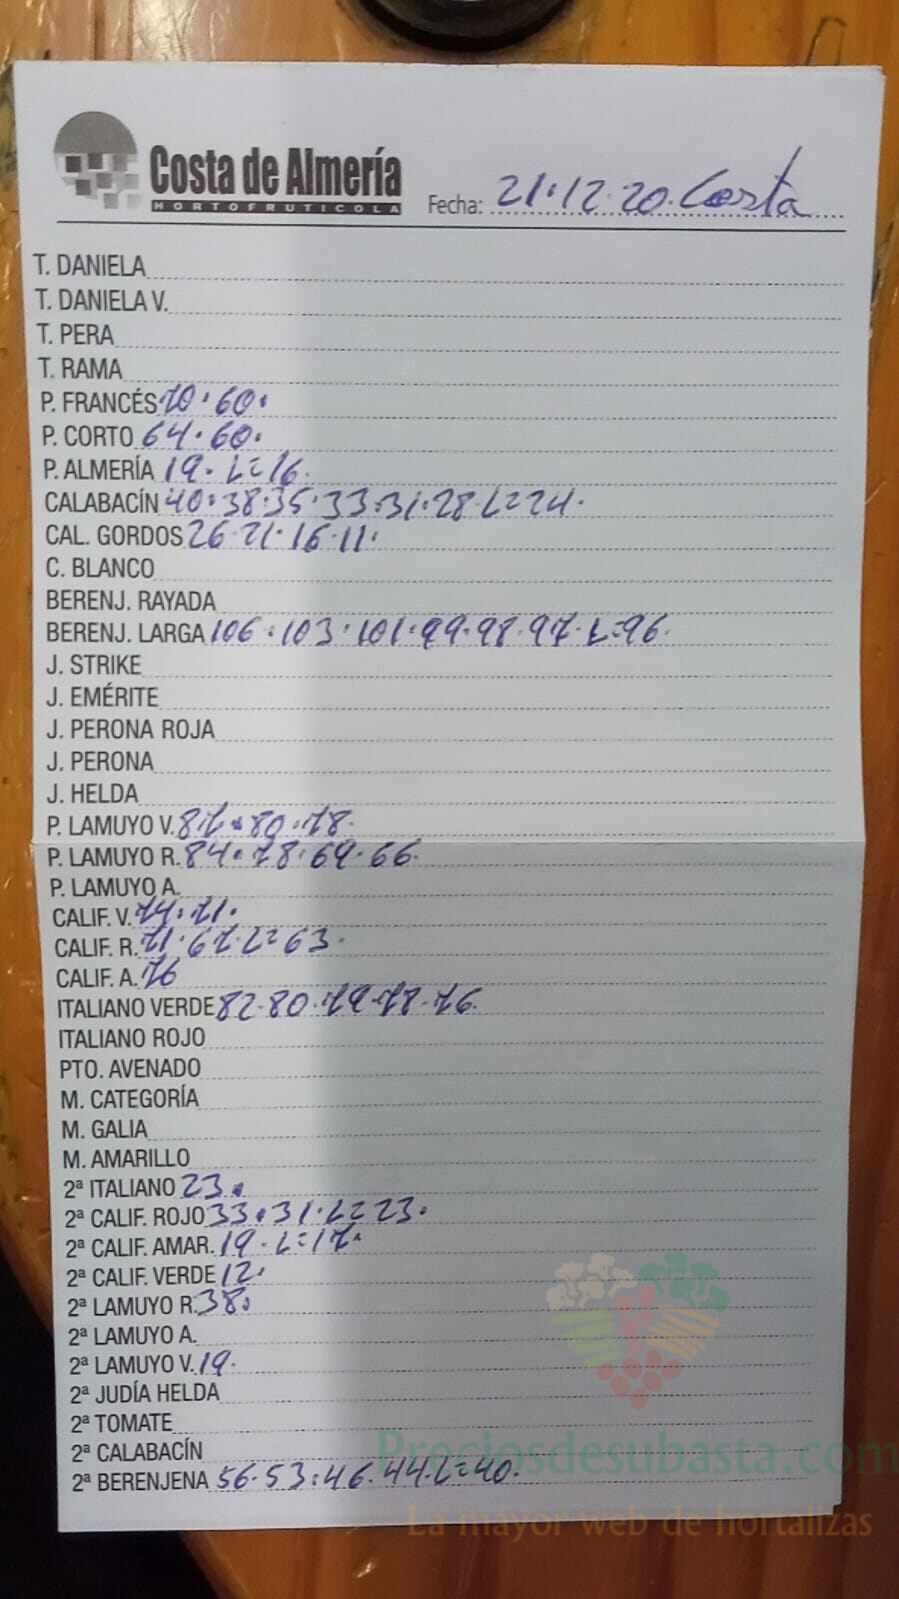 Costa de Almería
HORTOFRUTICOLA
Fecha: 21.12.20. Costa
T. DANIELA
T. DANIELA V.
T. PERA
T. RAMA
P. FRANCÉS 70.60.
P. CORTO 64.60.
P. ALMERÍA 19. L=16.
CALABACÍN 40.38.35.33.31.28.L=24.
CAL. GORDOS 26.21.16.11.
C. BLANCO
BERENJ. RAYADA
BERENJ. LARGA 106.103.101.99.98.97.L=96.
J. STRIKE
J. EMÉRITE
J. PERONA ROJA
J. PERONA
J. HELDA
P. LAMUYO V. 80.78.
P. LAMUYO R. 84.78.69.66.
P. LAMUYO A.
CALIF. V. 74.71.
CALIF. R. 71.67.L=63.
CALIF. A. 76
ITALIANO VERDE 82.80.79.78.76.
ITALIANO ROJO
PTO. AVENADO
M. CATEGORÍA
M. GALIA
M. AMARILLO
2ª ITALIANO 23.
2ª CALIF. ROJO 33.31.L=23.
2ª CALIF. AMAR. 19.L=17.
2ª CALIF. VERDE 12.
2ª LAMUYO R. 38.
2ª LAMUYO A.
2ª LAMUYO V. 19.
2ª JUDÍA HELDA
2ª TOMATE
2ª CALABACÍN
2ª BERENJENA 56.53.46.44.L=40.
Preciosdesubasta.com
La mayor web de hortalizas